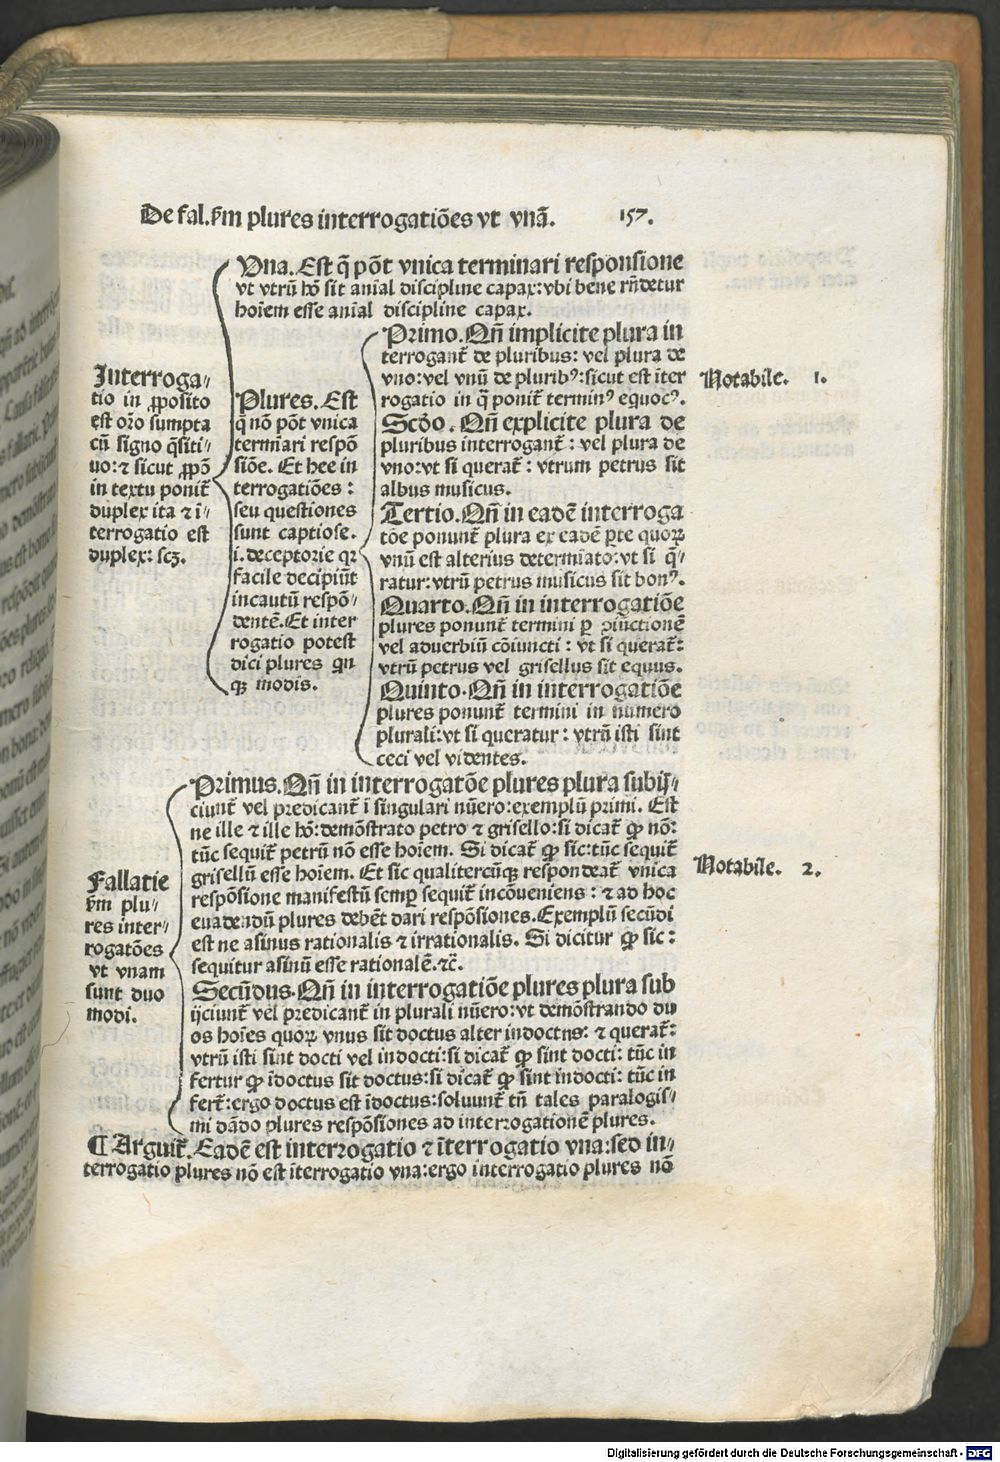 De fal. ẜm plures interrogatiões vt vnã. 157.
Interroga-
tio in ꝓposito
est or̃o sumpta
cũ signo q̃siti-
uo: ⁊ sicut ꝓpõ
in textu ponit̃
duplex ita ⁊ ĩ-
terrogatio est
duplex: scꝫ.
Vna. Est q̃ põt vnica terminari responsione
vt vtrũ hõ sit anĩal discipline capax: vbi bene rñdetur
hoĩem esse anĩal discipline capax.
Plures. Est
q̃ nõ põt vnica
termĩari respõ
siõe. Et hee in
terrogatiões:
seu questiones
sunt captiose.
i. deceptorie qꝛ
facile decipiũt
incautũ respõ-
dentẽ. Et inter
rogatio potest
dici plures qͥn
qꝫ modis.
Primo. Qñ implicite plura in
terrogant̃ de pluribus: vel plura de
vno: vel vnũ de pluribꝰ: sicut est ĩter
rogatio in q̃ ponit̃ terminꝰ equocꝰ.
Scđo. Qñ explicite plura de
pluribus interrogant̃: vel plura de
vno: vt si querat̃: vtrum petrus sit
albus musicus.
Tertio. Qñ in eadẽ interroga
tõe ponunt̃ plura ex eadẽ ꝑte quoꝝ
vnũ est alterius determĩatio: vt si q̃-
ratur: vtrũ petrus musicus sit bonꝰ.
Quarto. Qñ in interrogatiõe
plures ponunt̃ termini ꝑ ꝯiunctionẽ
vel aduerbiũ cõiuncti: vt si querat̃:
vtrũ petrus vel grisellus sit equus.
Quinto. Qñ in interrogatiõe
plures ponunt̃ termini in numero
plurali: vt si queratur: vtrũ isti sint
ceci vel videntes.
Notabile. 1.
Fallatie
ẜm plu-
res inter-
rogatões
vt vnam
sunt duo
modi.
Primus. Qñ in interrogatõe plures plura subij-
ciunt̃ vel predicant̃ ĩ singulari nũero: exemplũ primi. Est
ne ille ⁊ ille hõ: demõstrato petro ⁊ grisello: si dicat̃ ꝙ nõ:
tũc sequit̃ petrũ nõ esse hoĩem. Si dicat̃ ꝙ sic: tũc sequit̃
grisellũ esse hoĩem. Et sic qualitercũqꝫ respondeat̃ vnica
respõsione manifestũ semꝑ sequit̃ incõueniens: ⁊ ad hoc
euadendũ plures debẽt dari respõsiones. Exemplũ secũdi
est ne asinus rationalis ⁊ irrationalis. Si dicitur ꝙ sic:
sequitur asinũ esse rationalẽ. ⁊c̃.
Secũdus. Qñ in interrogatiõe plures plura sub
ijciunt̃ vel predicant̃ in plurali nũero: vt demõstrando du
os hoĩes quoꝝ vnus sit doctus alter indoctus: ⁊ querat̃:
vtrũ isti sint docti vel indocti: si dicat̃ ꝙ sint docti: tũc in
fertur ꝙ ĩdoctus sit doctus: si dicat̃ ꝙ sint indocti: tũc in
fert̃: ergo doctus est ĩdoctus: soluunt̃ tñ tales paralogis-
mi dãdo plures respõsiones ad interrogationẽ plures.
Notabile. 2.
¶ Arguit̃. Eadẽ est interrogatio ⁊ ĩterrogatio vna: sed in-
terrogatio plures nõ est ĩterrogatio vna: ergo interrogatio plures nõ
Digitalisierung gefördert durch die Deutsche Forschungsgemeinschaft - DFG